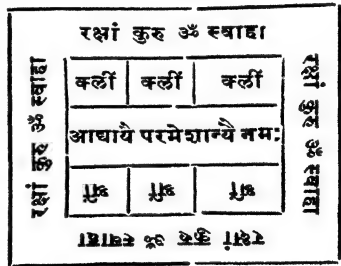 रक्षां कुरु ॐ स्वाहा।
रक्षां कुरु ॐ स्वाहा
क्लीं क्लीं क्लीं
आद्यायै परमेशान्यै नमः
रक्षां कुरु ॐ स्वाहा
रक्षां कुरु ॐ स्वाहा